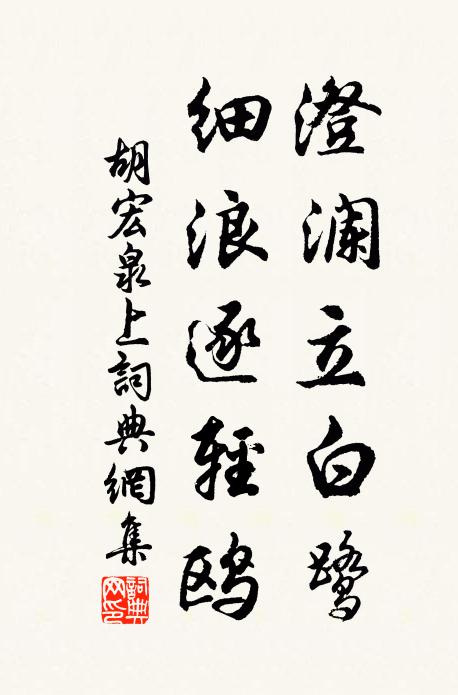 澄澜立白鹭
细浪逐輕鸥
胡宏泉上詞典網集
詞典网印